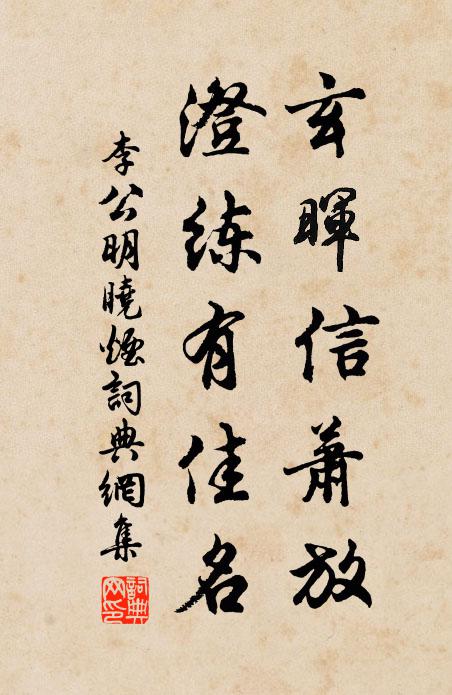 玄暉信蕭放
澄練有佳名
李公明曉煙詞典網集
詞典網印